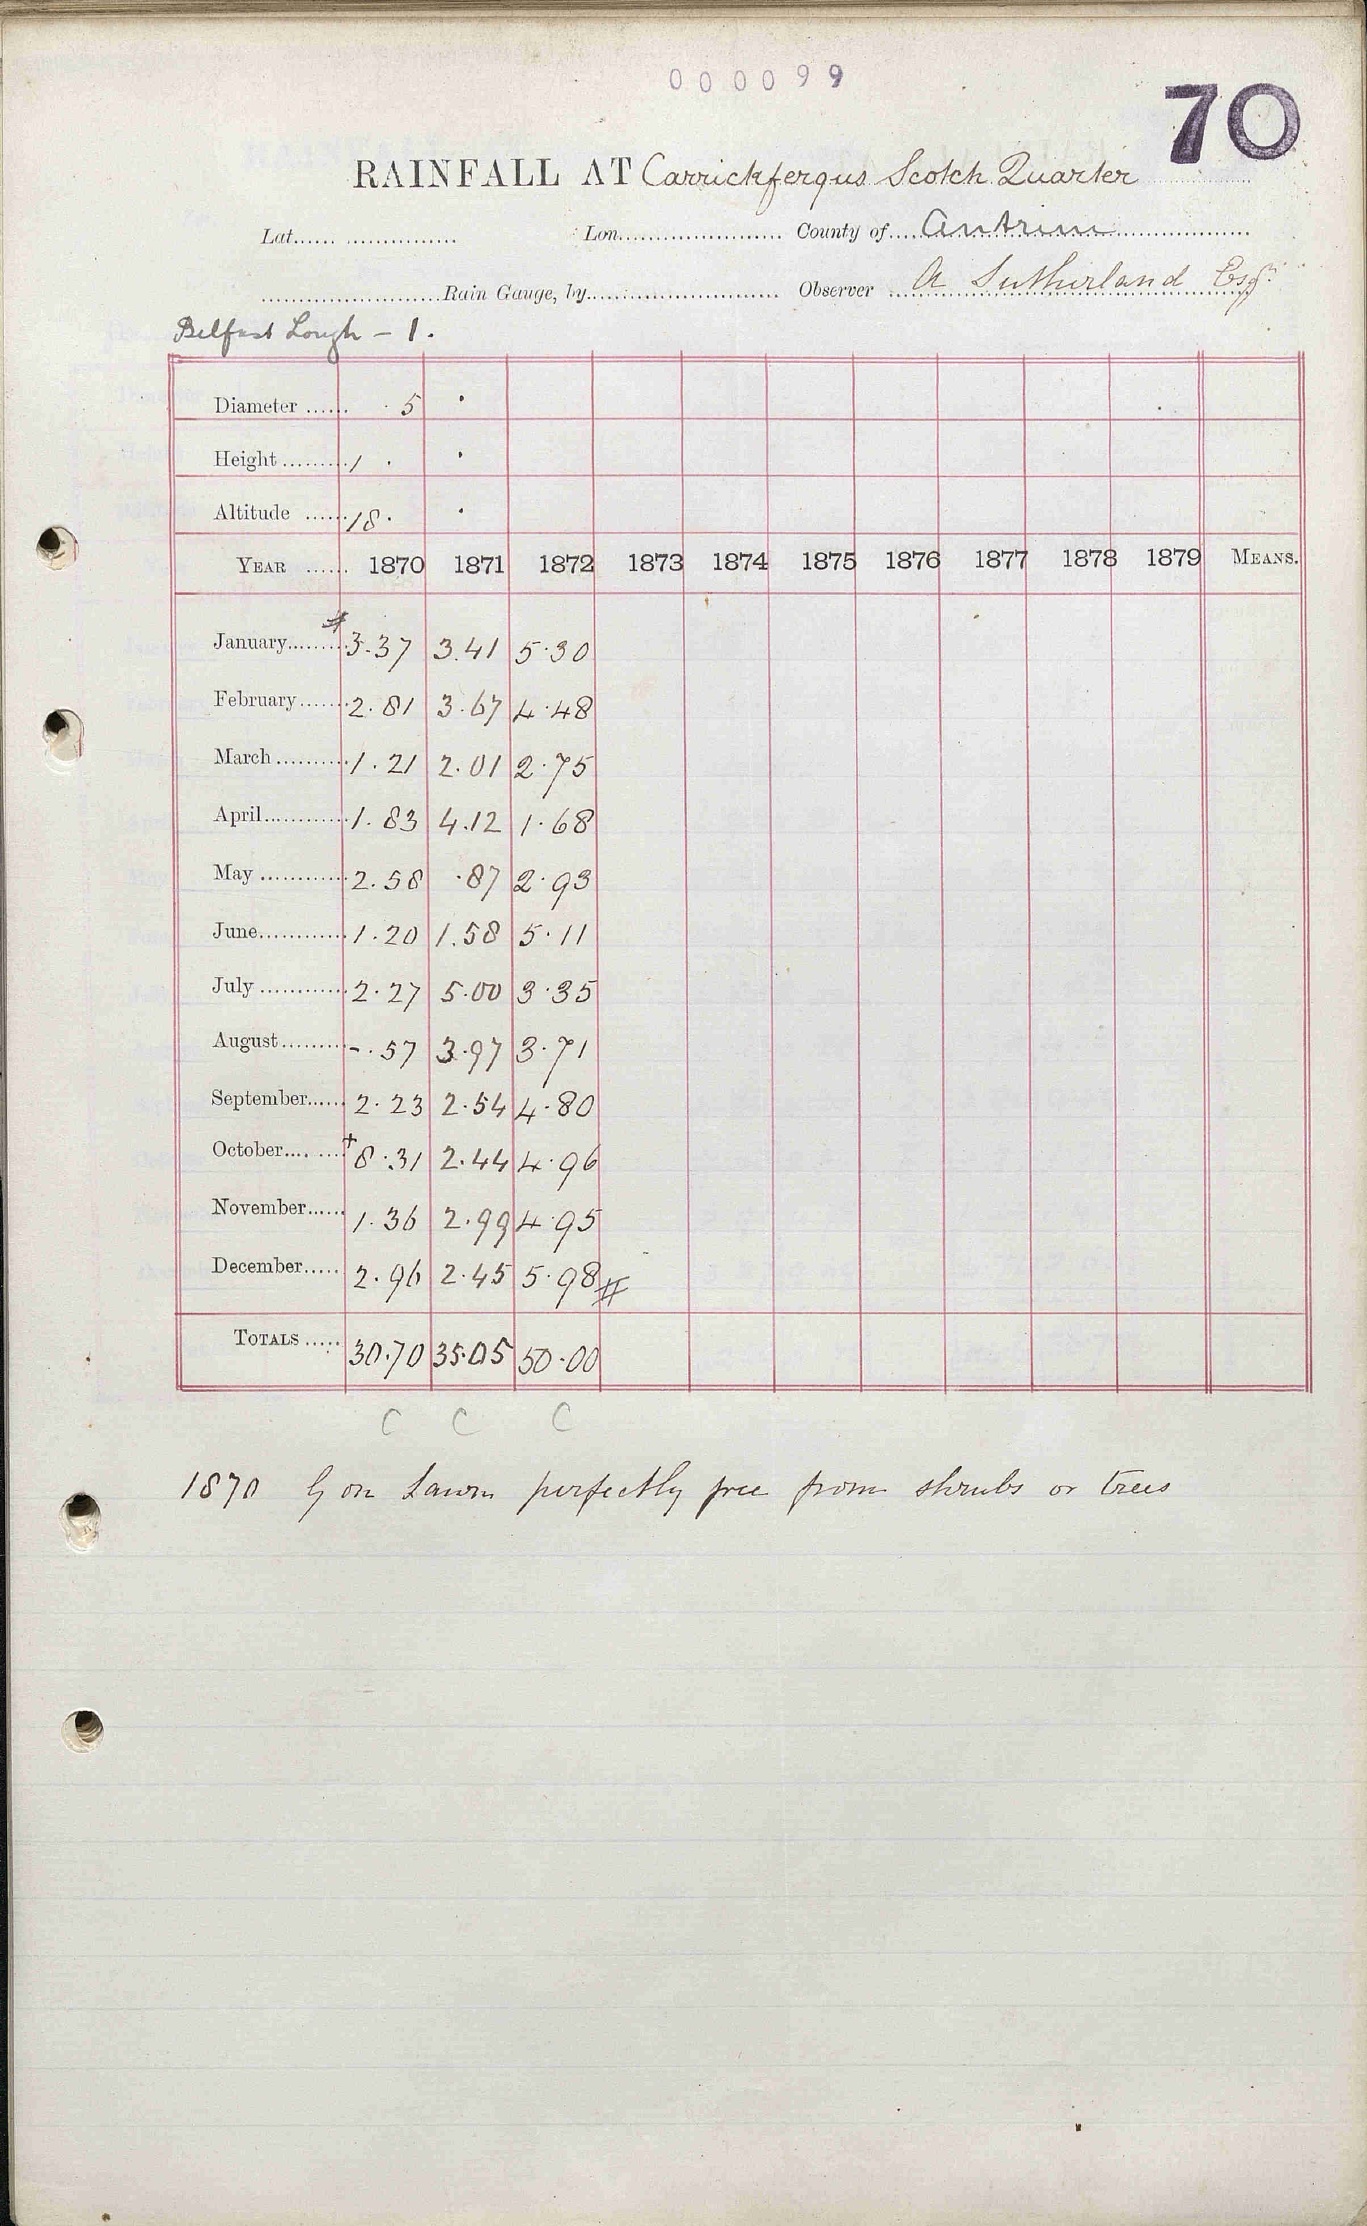 000099
70
RAINFALL AT Carrickfergus Scotch Quarter
Lat. Lon. County of Antrim
Rain Gauge, by Observer A Sutherland Esqr
Belfast Lough - 1.
Diameter 5 ·
Height 1 · ·
Altitude 18 · ·
YEAR 1870 1871 1872 1873 1874 1875 1876 1877 1878 1879 MEANS.
#
January 3.37 3.41 5.30
February 2.81 3.67 4.48
March 1.21 2.01 2.75
April 1.83 4.12 1.68
May 2.58 .87 2.93
June 1.20 1.58 5.11
July 2.27 5.00 3.35
August -.57 3.97 3.71
September 2.23 2.54 4.80
October +8.31 2.44 4.96
November 1.36 2.99 4.95
December 2.96 2.45 5.98 #
TOTALS 30.70 35.05 50.00
C C C
1870 G on Lawn perfectly free from shrubs or trees